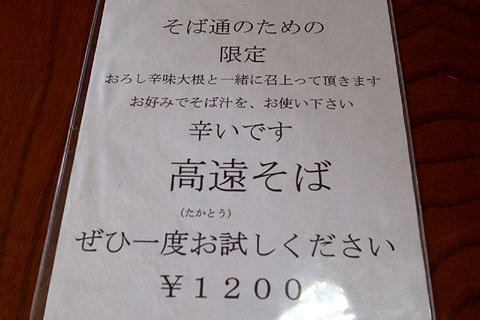 そば通のための
限定
おろし辛味大根と一緒に召上って頂きます
お好みでそば汁を、お使い下さい
辛いです
高遠そば
（たかとう）
ぜひ一度お試しください
￥１２００